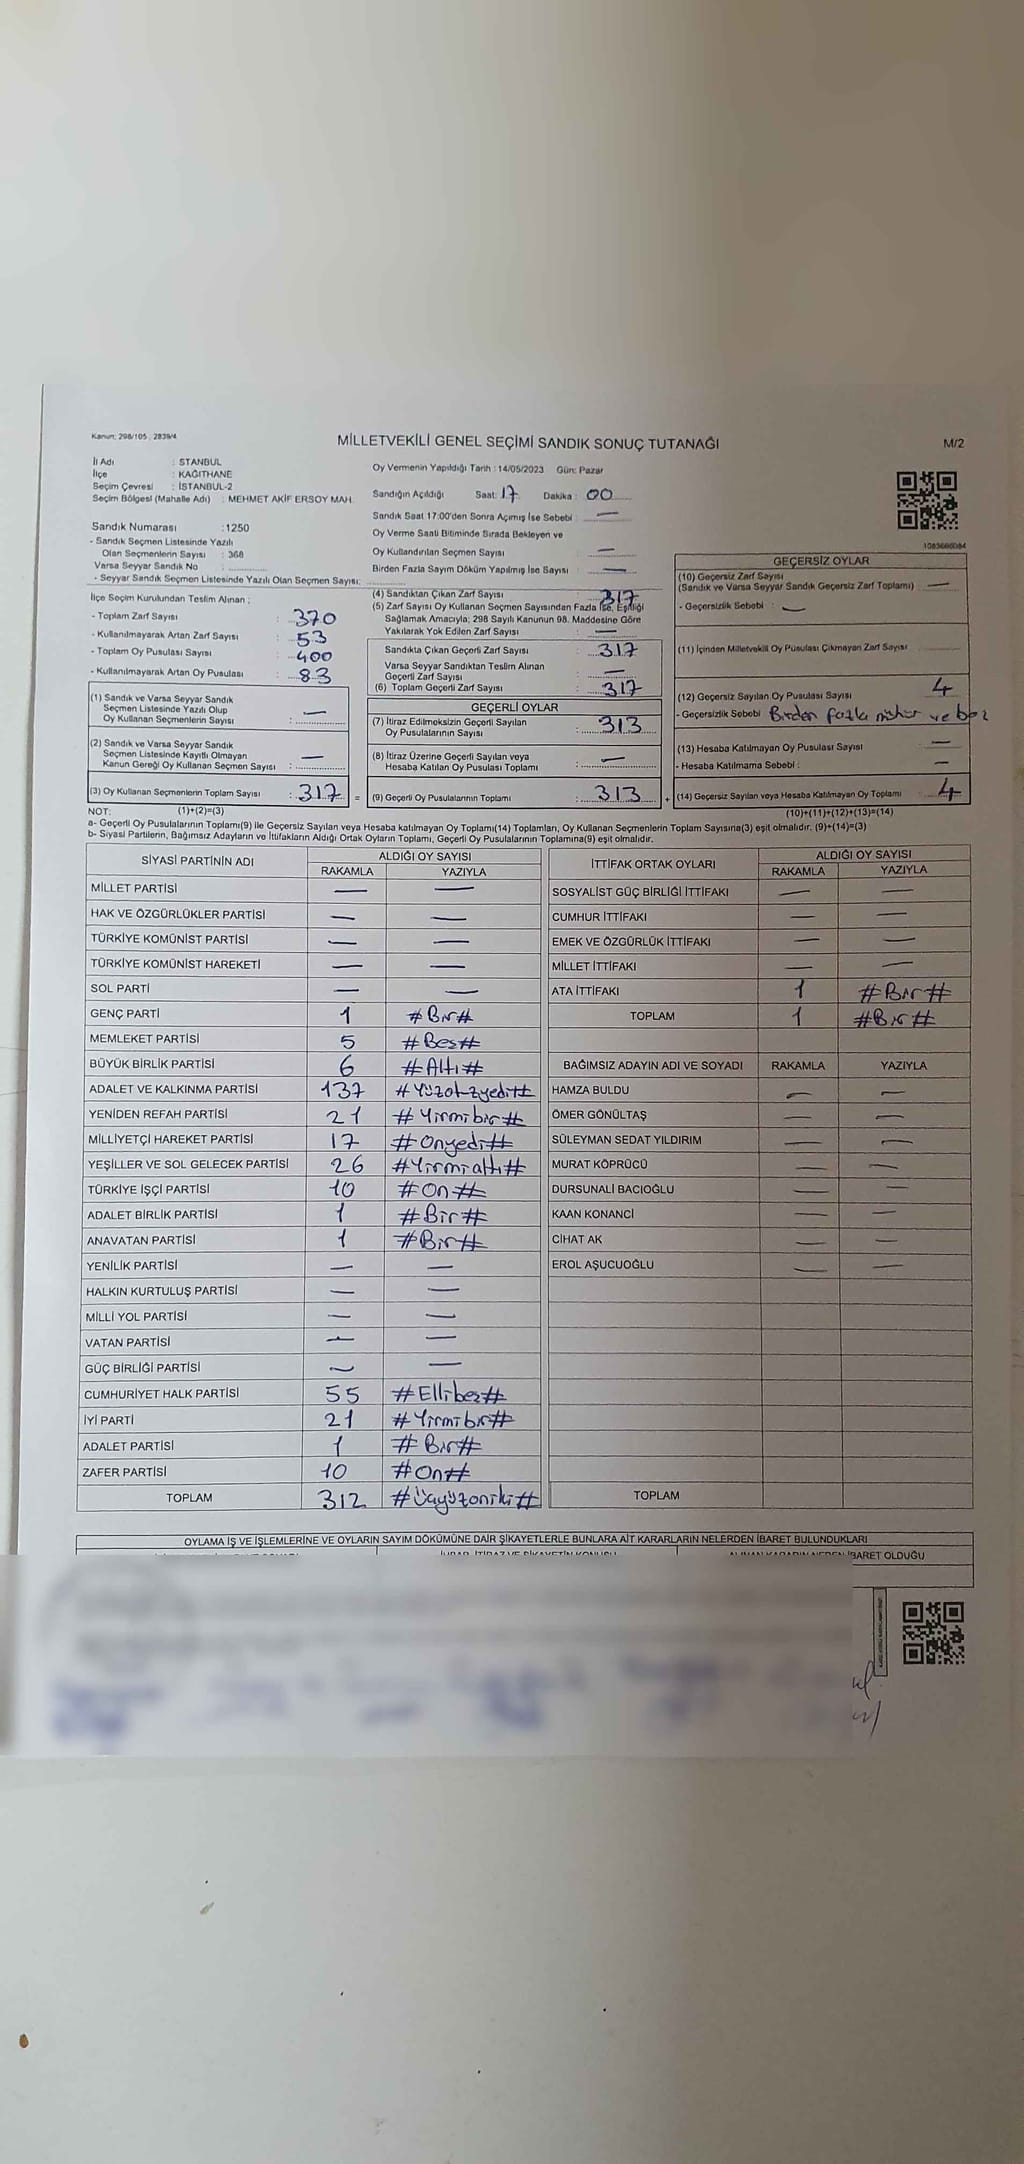 Kanun: 298/105, 2839/4
MİLLETVEKİLİ GENEL SEÇİMİ SANDIK SONUÇ TUTANAĞI
M/2
İl Adı : STANBUL
İlçe : KAĞITHANE
Seçim Çevresi : İSTANBUL-2
Seçim Bölgesi (Mahalle Adı) : MEHMET AKİF ERSOY MAH.
Sandık Numarası :1250
- Sandık Seçmen Listesinde Yazılı
Olan Seçmenlerin Sayısı : 368
Varsa Seyyar Sandık No :
- Seyyar Sandık Seçmen Listesinde Yazılı Olan Seçmen Sayısı:
İlçe Seçim Kurulundan Teslim Alınan ;
- Toplam Zarf Sayısı : 370
- Kullanılmayarak Artan Zarf Sayısı : 53
- Toplam Oy Pusulası Sayısı : 400
- Kullanılmayarak Artan Oy Pusulası : 83
(1) Sandık ve Varsa Seyyar Sandık
Seçmen Listesinde Yazılı Olup
Oy Kullanan Seçmenlerin Sayısı : —
(2) Sandık ve Varsa Seyyar Sandık
Seçmen Listesinde Kayıtlı Olmayan
Kanun Gereği Oy Kullanan Seçmen Sayısı : —
(3) Oy Kullanan Seçmenlerin Toplam Sayısı : 317 =
Oy Vermenin Yapıldığı Tarih : 14/05/2023 Gün: Pazar
Sandığın Açıldığı Saat: 17 Dakika : 00
Sandık Saat 17:00'den Sonra Açımış İse Sebebi : —
Oy Verme Saati Bitiminde Sırada Bekleyen ve
Oy Kullandırılan Seçmen Sayısı : —
Birden Fazla Sayım Döküm Yapılmış İse Sayısı : —
(4) Sandıktan Çıkan Zarf Sayısı : 317
(5) Zarf Sayısı Oy Kullanan Seçmen Sayısından Fazla İse, Eşitliği
Sağlamak Amacıyla; 298 Sayılı Kanunun 98. Maddesine Göre
Yakılarak Yok Edilen Zarf Sayısı : —
Sandıkta Çıkan Geçerli Zarf Sayısı : 317
Varsa Seyyar Sandıktan Teslim Alınan
Geçerli Zarf Sayısı : —
(6) Toplam Geçerli Zarf Sayısı : 317
GEÇERLİ OYLAR
(7) İtiraz Edilmeksizin Geçerli Sayılan
Oy Pusulalarının Sayısı : 313
(8) İtiraz Üzerine Geçerli Sayılan veya
Hesaba Katılan Oy Pusulası Toplamı : —
(9) Geçerli Oy Pusulalarının Toplamı : 313 +
1083686084
GEÇERSİZ OYLAR
(10) Geçersiz Zarf Sayısı
(Sandık ve Varsa Seyyar Sandık Geçersiz Zarf Toplamı) : —
- Geçersizlik Sebebi : —
(11) İçinden Milletvekili Oy Pusulası Çıkmayan Zarf Sayısı :
(12) Geçersiz Sayılan Oy Pusulası Sayısı 4
- Geçersizlik Sebebi : Birden fazla mühür ve boz
(13) Hesaba Katılmayan Oy Pusulası Sayısı : —
- Hesaba Katılmama Sebebi : —
(14) Geçersiz Sayılan veya Hesaba Katılmayan Oy Toplamı : 4
NOT: (1)+(2)=(3) (10)+(11)+(12)+(13)=(14)
a- Geçerli Oy Pusulalarının Toplamı(9) ile Geçersiz Sayılan veya Hesaba katılmayan Oy Toplamı(14) Toplamları, Oy Kullanan Seçmenlerin Toplam Sayısına(3) eşit olmalıdır. (9)+(14)=(3)
b- Siyasi Partilerin, Bağımsız Adayların ve İttifakların Aldığı Ortak Oyların Toplamı, Geçerli Oy Pusulalarının Toplamına(9) eşit olmalıdır.
SİYASİ PARTİNİN ADI ALDIĞI OY SAYISI
RAKAMLA YAZIYLA
MİLLET PARTİSİ — —
HAK VE ÖZGÜRLÜKLER PARTİSİ — —
TÜRKİYE KOMÜNİST PARTİSİ — —
TÜRKİYE KOMÜNİST HAREKETİ — —
SOL PARTİ — —
GENÇ PARTİ 1 #Bir#
MEMLEKET PARTİSİ 5 #Beş#
BÜYÜK BİRLİK PARTİSİ 6 #Altı#
ADALET VE KALKINMA PARTİSİ 137 #Yüzotuzyedi#
YENİDEN REFAH PARTİSİ 21 #Yirmibir#
MİLLİYETÇİ HAREKET PARTİSİ 17 #Onyedi#
YEŞİLLER VE SOL GELECEK PARTİSİ 26 #Yirmialtı#
TÜRKİYE İŞÇİ PARTİSİ 10 #On#
ADALET BİRLİK PARTİSİ 1 #Bir#
ANAVATAN PARTİSİ 1 #Bir#
YENİLİK PARTİSİ — —
HALKIN KURTULUŞ PARTİSİ — —
MİLLİ YOL PARTİSİ — —
VATAN PARTİSİ — —
GÜÇ BİRLİĞİ PARTİSİ — —
CUMHURİYET HALK PARTİSİ 55 #Ellibeş#
İYİ PARTİ 21 #Yirmibir#
ADALET PARTİSİ 1 #Bir#
ZAFER PARTİSİ 10 #On#
TOPLAM 312 #Üçyüzoniki#
İTTİFAK ORTAK OYLARI ALDIĞI OY SAYISI
RAKAMLA YAZIYLA
SOSYALİST GÜÇ BİRLİĞİ İTTİFAKI — —
CUMHUR İTTİFAKI — —
EMEK VE ÖZGÜRLÜK İTTİFAKI — —
MİLLET İTTİFAKI — —
ATA İTTİFAKI 1 #Bir#
TOPLAM 1 #Bir#
BAĞIMSIZ ADAYIN ADI VE SOYADI RAKAMLA YAZIYLA
HAMZA BULDU — —
ÖMER GÖNÜLTAŞ — —
SÜLEYMAN SEDAT YILDIRIM — —
MURAT KÖPRÜCÜ — —
DURSUNALİ BACIOĞLU — —
KAAN KONANCİ — —
CİHAT AK — —
EROL AŞUCUOĞLU — —
TOPLAM
OYLAMA İŞ VE İŞLEMLERİNE VE OYLARIN SAYIM DÖKÜMÜNE DAİR ŞİKAYETLERLE BUNLARA AİT KARARLARIN NELERDEN İBARET BULUNDUKLARI
İBARET OLDUĞU